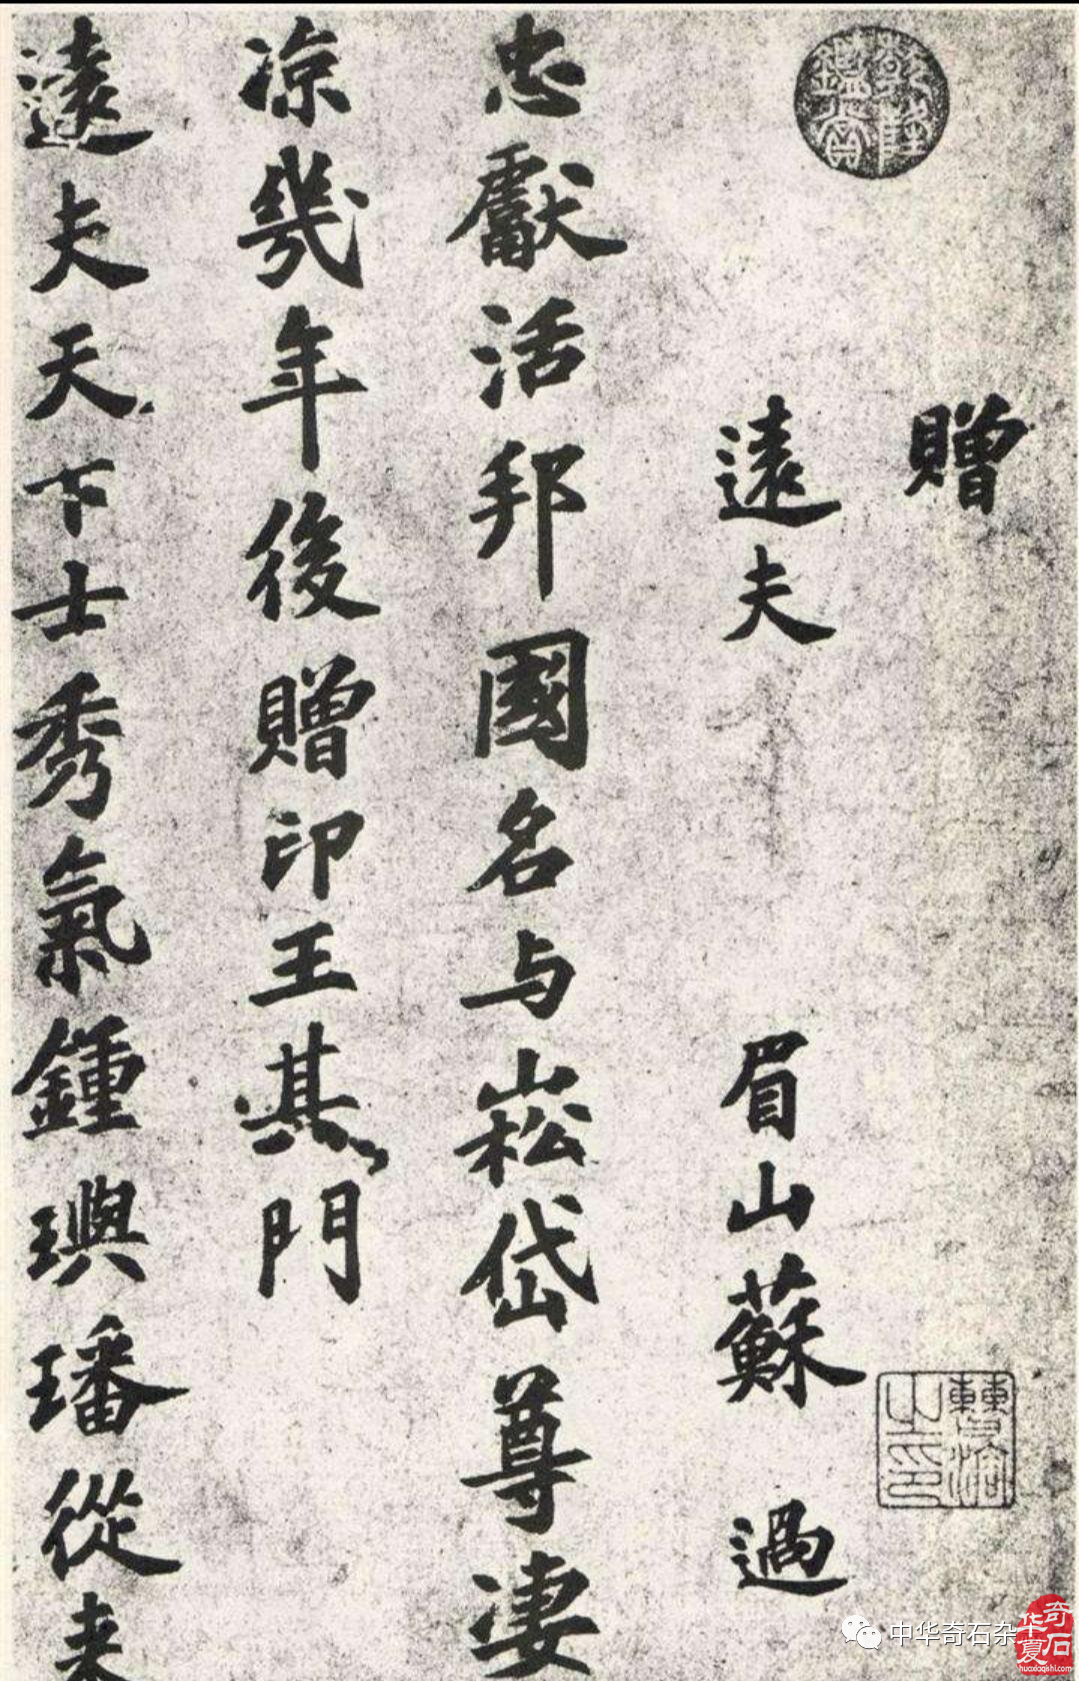 贈
遠夫
眉山蘇 過
忠獻活邦國名与崧岱尊凄
凉幾年後贈印王其門
遠夫天下士秀氣鍾璵璠從来
乾隆鑑賞
之印
中华奇石杂
华夏奇石
huaxiaqishi.com